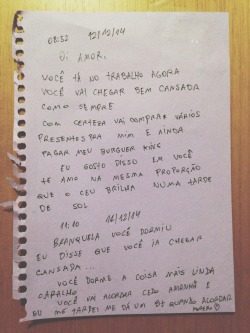 08:52 12/12/14
OI AMOR,
VOCÊ TÁ NO TRABALHO AGORA
VOCÊ VAI CHEGAR BEM CANSADA
COMO SEMPRE
COM CERTEZA VAI COMPRAR VÁRIOS
PRESENTES PRA MIM E AINDA
PAGAR MEU BURGUER KING
EU GOSTO DISSO EM VOCÊ
TE AMO NA MESMA PROPORÇÃO
QUE O CEU BRILHA NUMA TARDE
DE SOL
11:10 16/12/14
BRANQUELA VOCÊ DORMIU
EU DISSE QUE VOCÊ IA CHEGAR
CANSADA...
VOCÊ DORME A COISA MAIS LINDA
CARALHO
VOCÊ VAI ACORDAR CEDO AMANHÃ E
EU ME TARDEI ME DÁ UM QUANDO ACORDAR